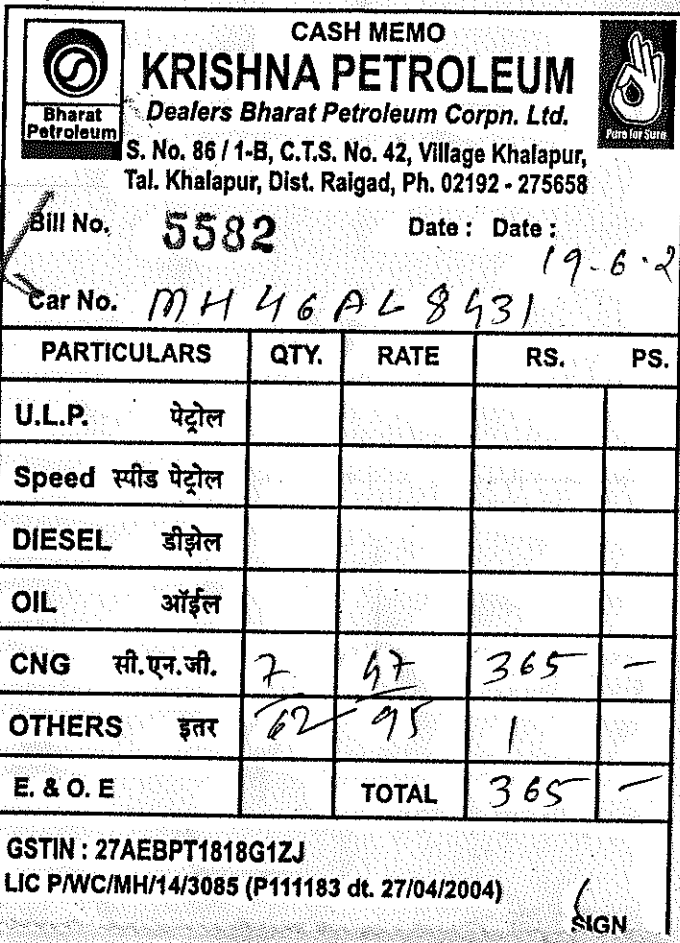 CASH MEMO
KRISHNA PETROLEUM
Dealers Bharat Petroleum Corpn. Ltd.
Bharat
Petroleum
Pure for Sure
S. No. 86 / 1-B, C.T.S. No. 42, Village Khalapur,
Tal. Khalapur, Dist. Raigad, Ph. 02192 - 275658
Bill No. 5582 Date : Date :
19-6-2
Car No. MH 46 AL 8431
PARTICULARS QTY. RATE RS. PS.
U.L.P. पेट्रोल
Speed स्पीड पेट्रोल
DIESEL डीझेल
OIL ऑईल
CNG सी.एन.जी. 7 47 365 -
OTHERS इतर 62 95
E. & O. E TOTAL 365 -
GSTIN : 27AEBPT1818G1ZJ
LIC P/WC/MH/14/3085 (P111183 dt. 27/04/2004)
SIGN